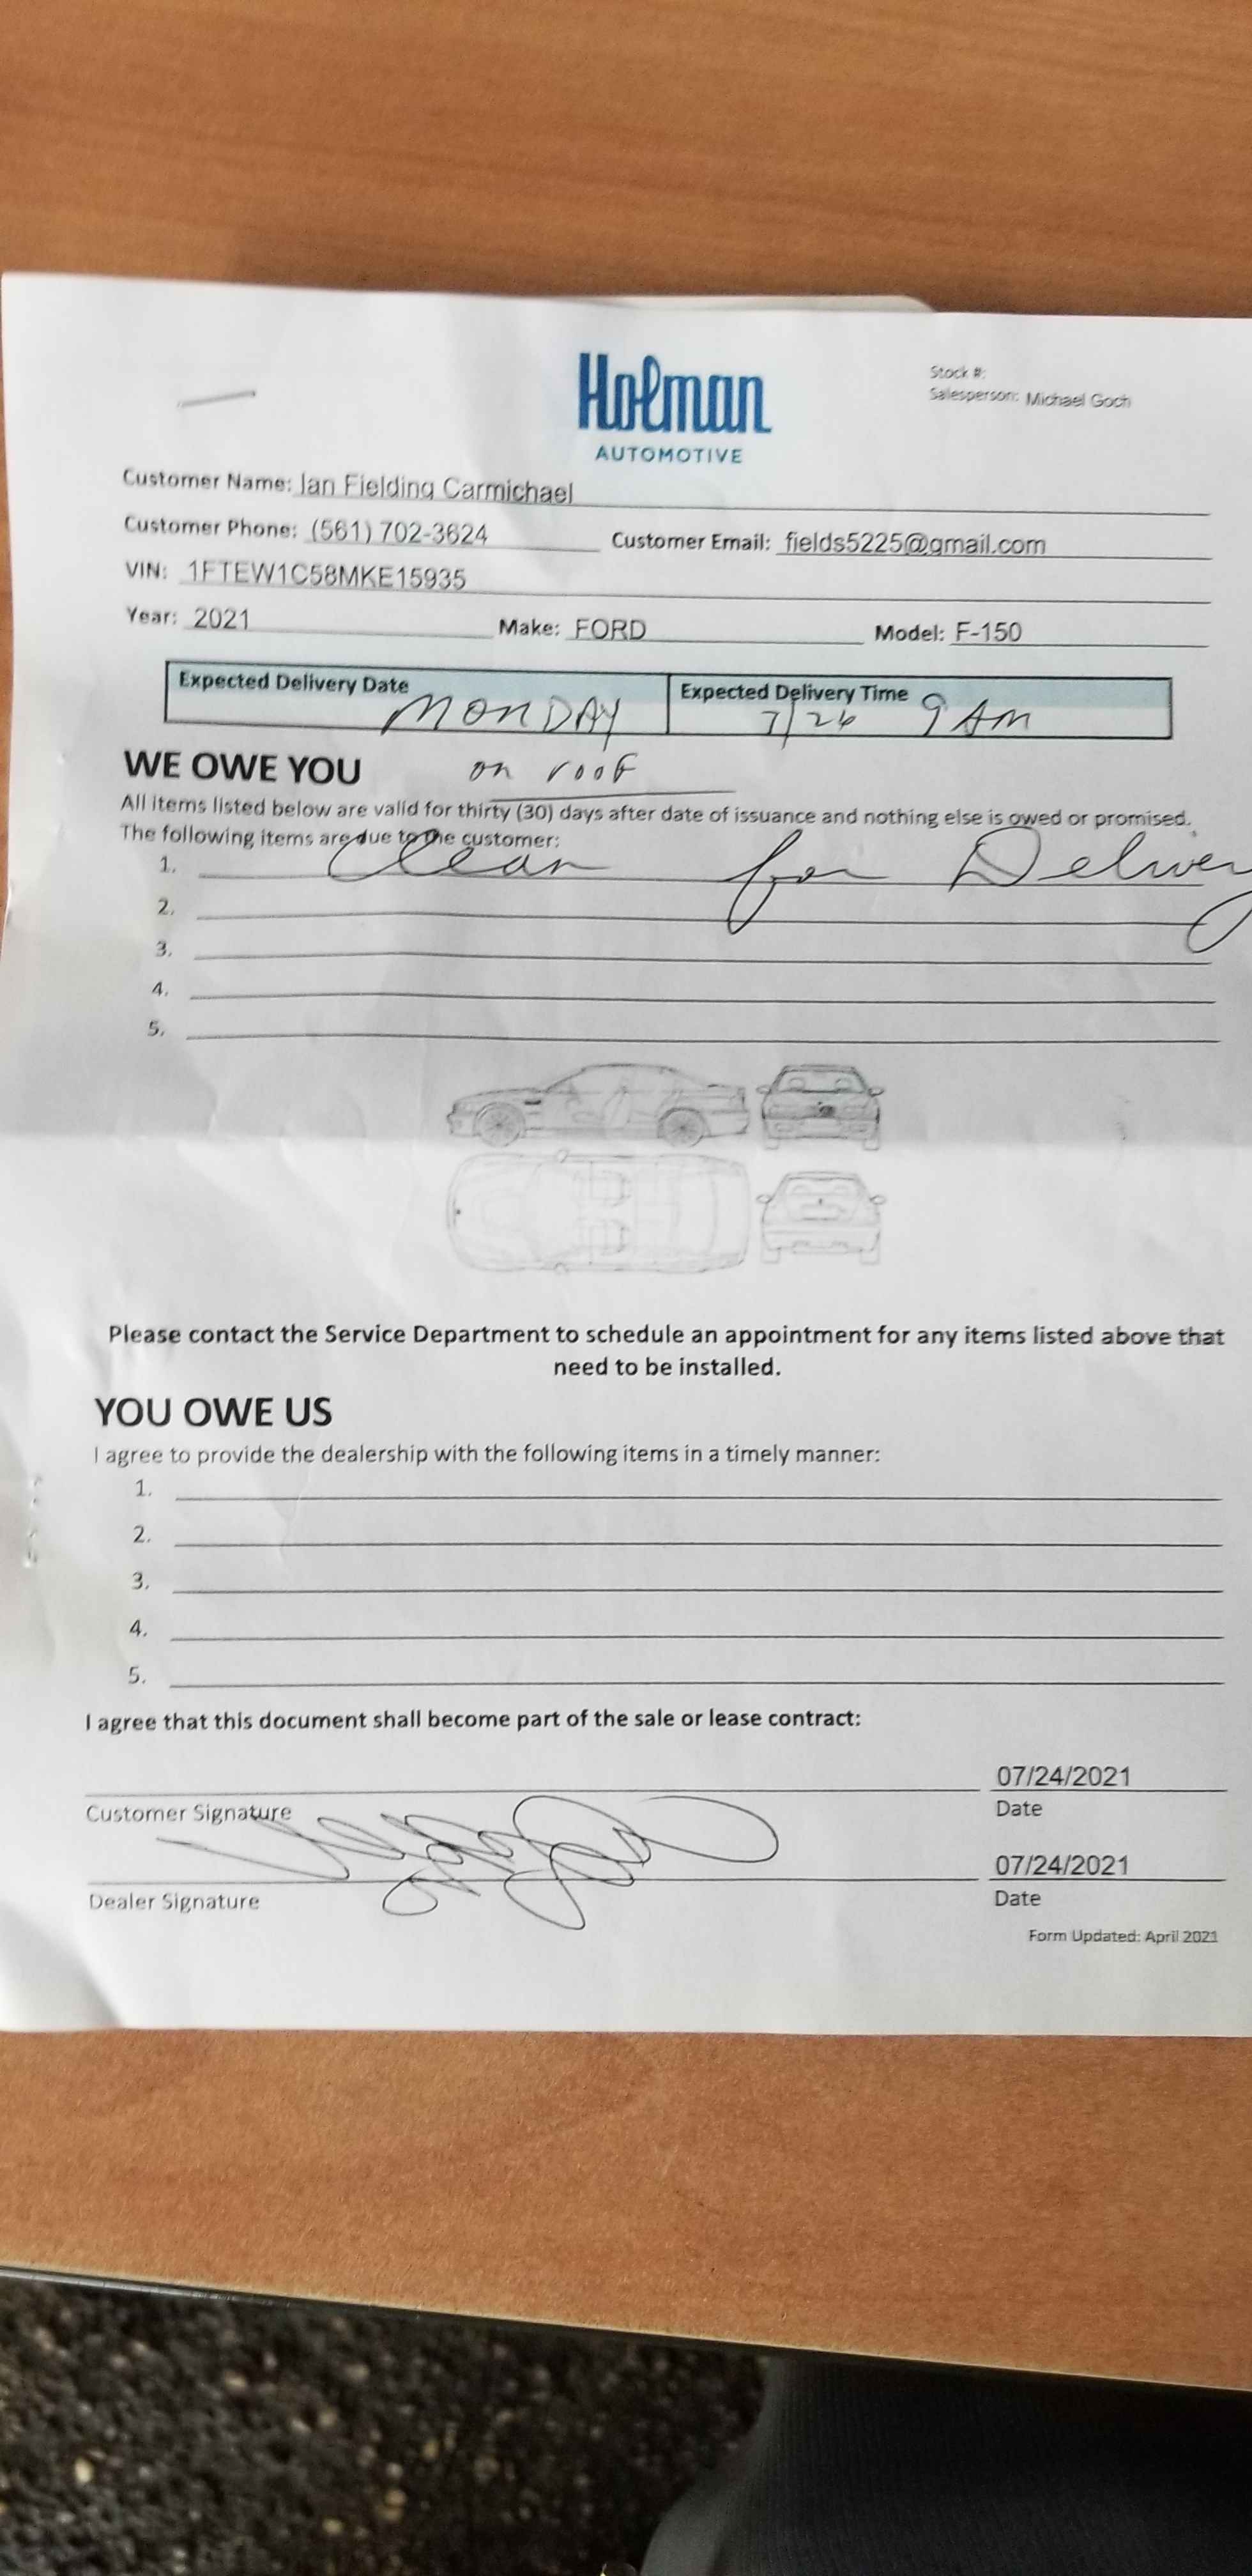 Holman
AUTOMOTIVE
Stock #:
Salesperson: Michael Goch
Customer Name: Ian Fielding Carmichael
Customer Phone: (561) 702-3624 Customer Email: fields5225@gmail.com
VIN: 1FTEW1C58MKE15935
Year: 2021 Make: FORD Model: F-150
Expected Delivery Date Expected Delivery Time
MONDAY 7/26 9 AM
WE OWE YOU on roof
All items listed below are valid for thirty (30) days after date of issuance and nothing else is owed or promised.
The following items are due to the customer:
1. Clean for Delivery
2.
3.
4.
5.
Please contact the Service Department to schedule an appointment for any items listed above that
need to be installed.
YOU OWE US
I agree to provide the dealership with the following items in a timely manner:
1.
2.
3.
4.
5.
I agree that this document shall become part of the sale or lease contract:
07/24/2021
Customer Signature Date
07/24/2021
Dealer Signature Date
Form Updated: April 2021